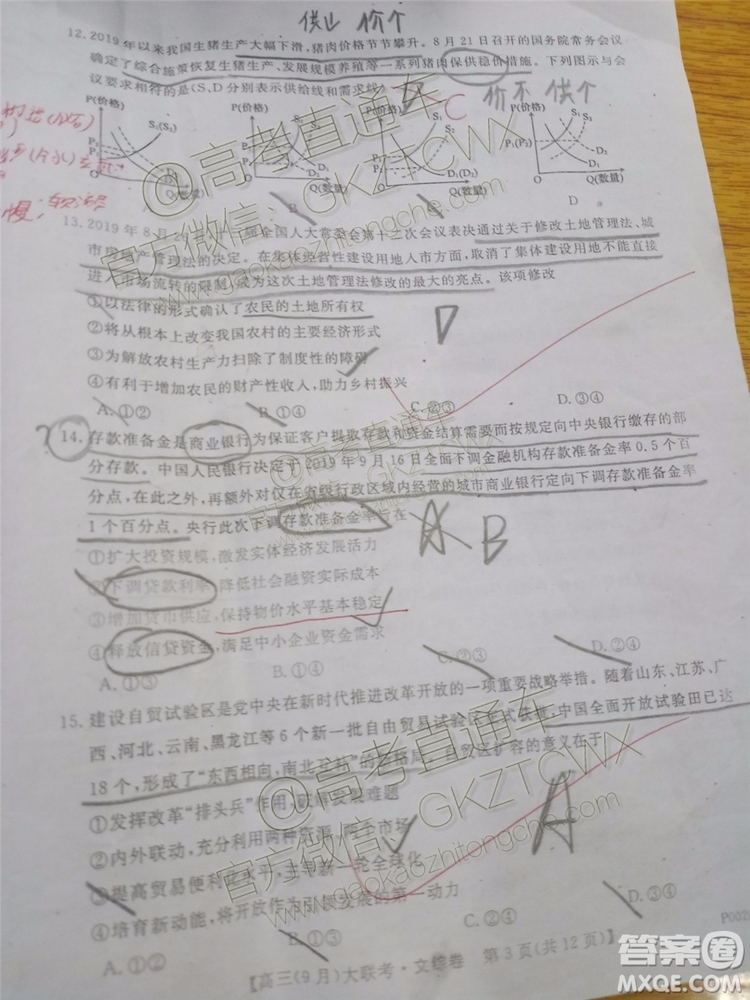 供山 价个
12. 2019年以来我国生猪生产大幅下滑，猪肉价格节节攀升。8月21日召开的国务院常务会议
确定了综合施策恢复生猪生产、发展规模养殖等一系列猪肉保供稳价措施。下列图示与会
议要求相符的是(S、D分别表示供给线和需求线)
C 价不 供个
P(价格) P(价格) P(价格) P(价格)
Q(数量) Q(数量)
B D
13. 2019年8月26日，十三届全国人大常委会第十二次会议表决通过关于修改土地管理法、城
市房地产管理法的决定。在集体经营性建设用地入市方面，取消了集体建设用地不能直接
进入市场流转的限制，成为这次土地管理法修改的最大的亮点。该项修改
①以法律的形式确认了农民的土地所有权
②将从根本上改变我国农村的主要经济形式
③为解放农村生产力扫除了制度性的障碍
④有利于增加农民的财产性收入，助力乡村振兴
D
A. ①② B. ①④ C. ②③ D. ③④
14. 存款准备金是商业银行为保证客户提取存款和资金结算需要而按规定向中央银行缴存的部
分存款。中国人民银行决定于2019年9月16日全面下调金融机构存款准备金率0.5个百
分点，在此之外，再额外对仅在省级行政区域内经营的城市商业银行定向下调存款准备金率
1个百分点。央行此次下调存款准备金率旨在
A B
①扩大投资规模，激发实体经济发展活力
②下调贷款利率，降低社会融资实际成本
③增加货币供应，保持物价水平基本稳定
④释放信贷资金，满足中小企业资金需求
A. ①③ B. ①④ C. ②③ D. ②④
15. 建设自贸试验区是党中央在新时代推进改革开放的一项重要战略举措。随着山东、江苏、广
西、河北、云南、黑龙江等6个新一批自由贸易试验区正式获批，中国全面开放试验田已达
18个，形成了“东西相向，南北呼应”的新格局。自贸区扩容的意义在于
①发挥改革“排头兵”作用，破解发展难题
②内外联动，充分利用两种资源、两个市场
③提高贸易便利化水平，主导新一轮全球化
④培育新动能，将开放作为引领发展的第一动力
A
A. ①② B. ①③ C. ②④ D. ③④
【高三(9月)大联考·文综卷 第3页(共12页)】
P002
@高考直通车
官方微信：GKZTCWX
www.gaokaozhitongche.com
@高考直通车
官方微信：GKZTCWX
www.gaokaozhitongche.com
答案圈
MXQE.COM